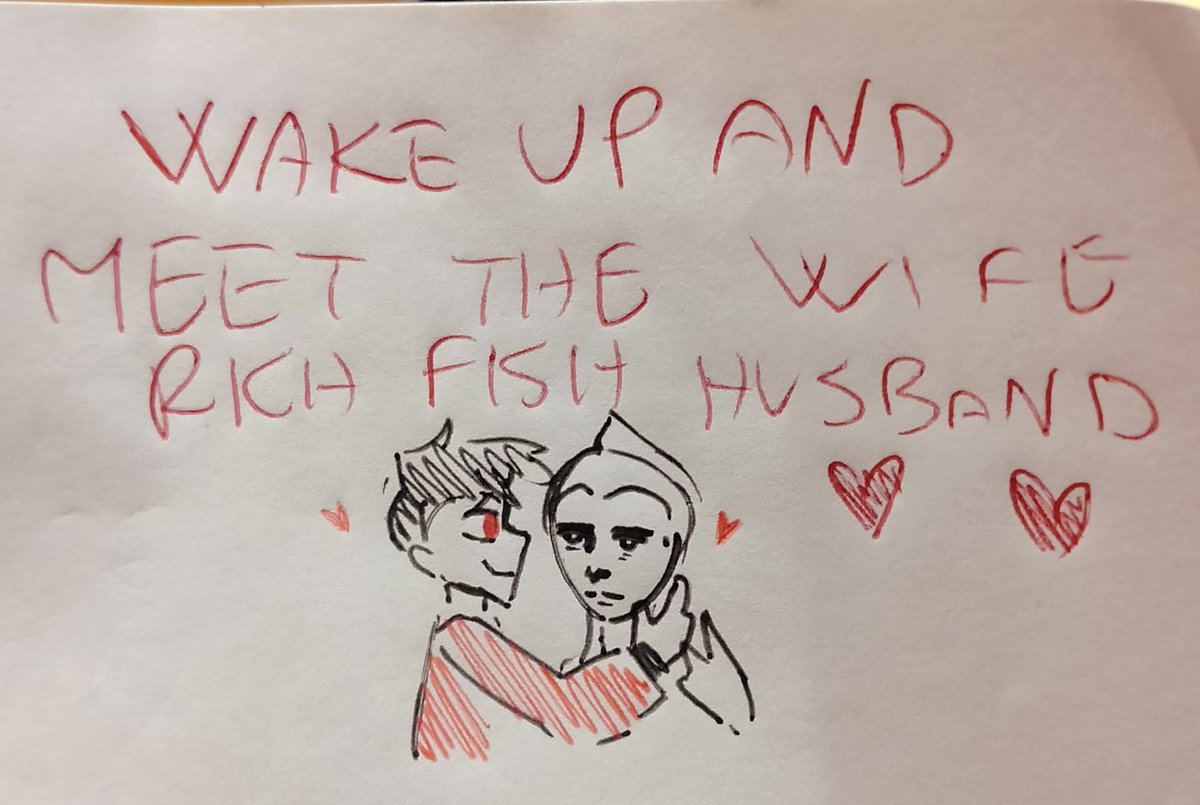 WAKE UP AND
MEET THE WIFE
RICH FISH HUSBAND